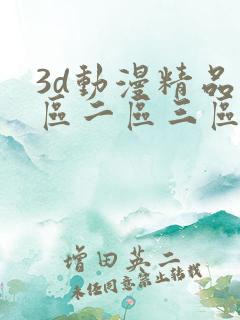 3d動漫精品
區二區三區
增田英二
未经同意禁止转载